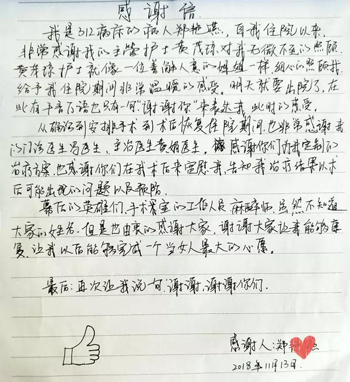 感谢信
我是312病床的病人郑艳 自我住院以来
非常感谢我的主管护士黄茂琼对我无微不至的照顾
黄茂琼护士就像一位善解人意的姐姐一样细心的照顾我
给予我住院期间非常温暖的感受,明天就要出院了,在
此有千言万语也只有一句"谢谢你"来表达我此时的感受。
从确诊到安排手术到术后恢复在住院期间也非常感谢
的门诊医生 医生、主治医生黄娟医生,感谢你们为我定制的
治疗方案,也感谢你们在我术后来安慰我,告知我治疗结果以术
后可能出现的问题以及预防。
幕后的英雄们,手术室室的工作人员麻醉师,虽然不知道
大家的姓名,但是也由衷的感谢大家,谢谢大家让我能够康
复,让我以后能够完成一个当女人最大的心愿。
最后:再次让我说一句,谢谢,谢谢你们。
感谢人:郑
2018年11月13日